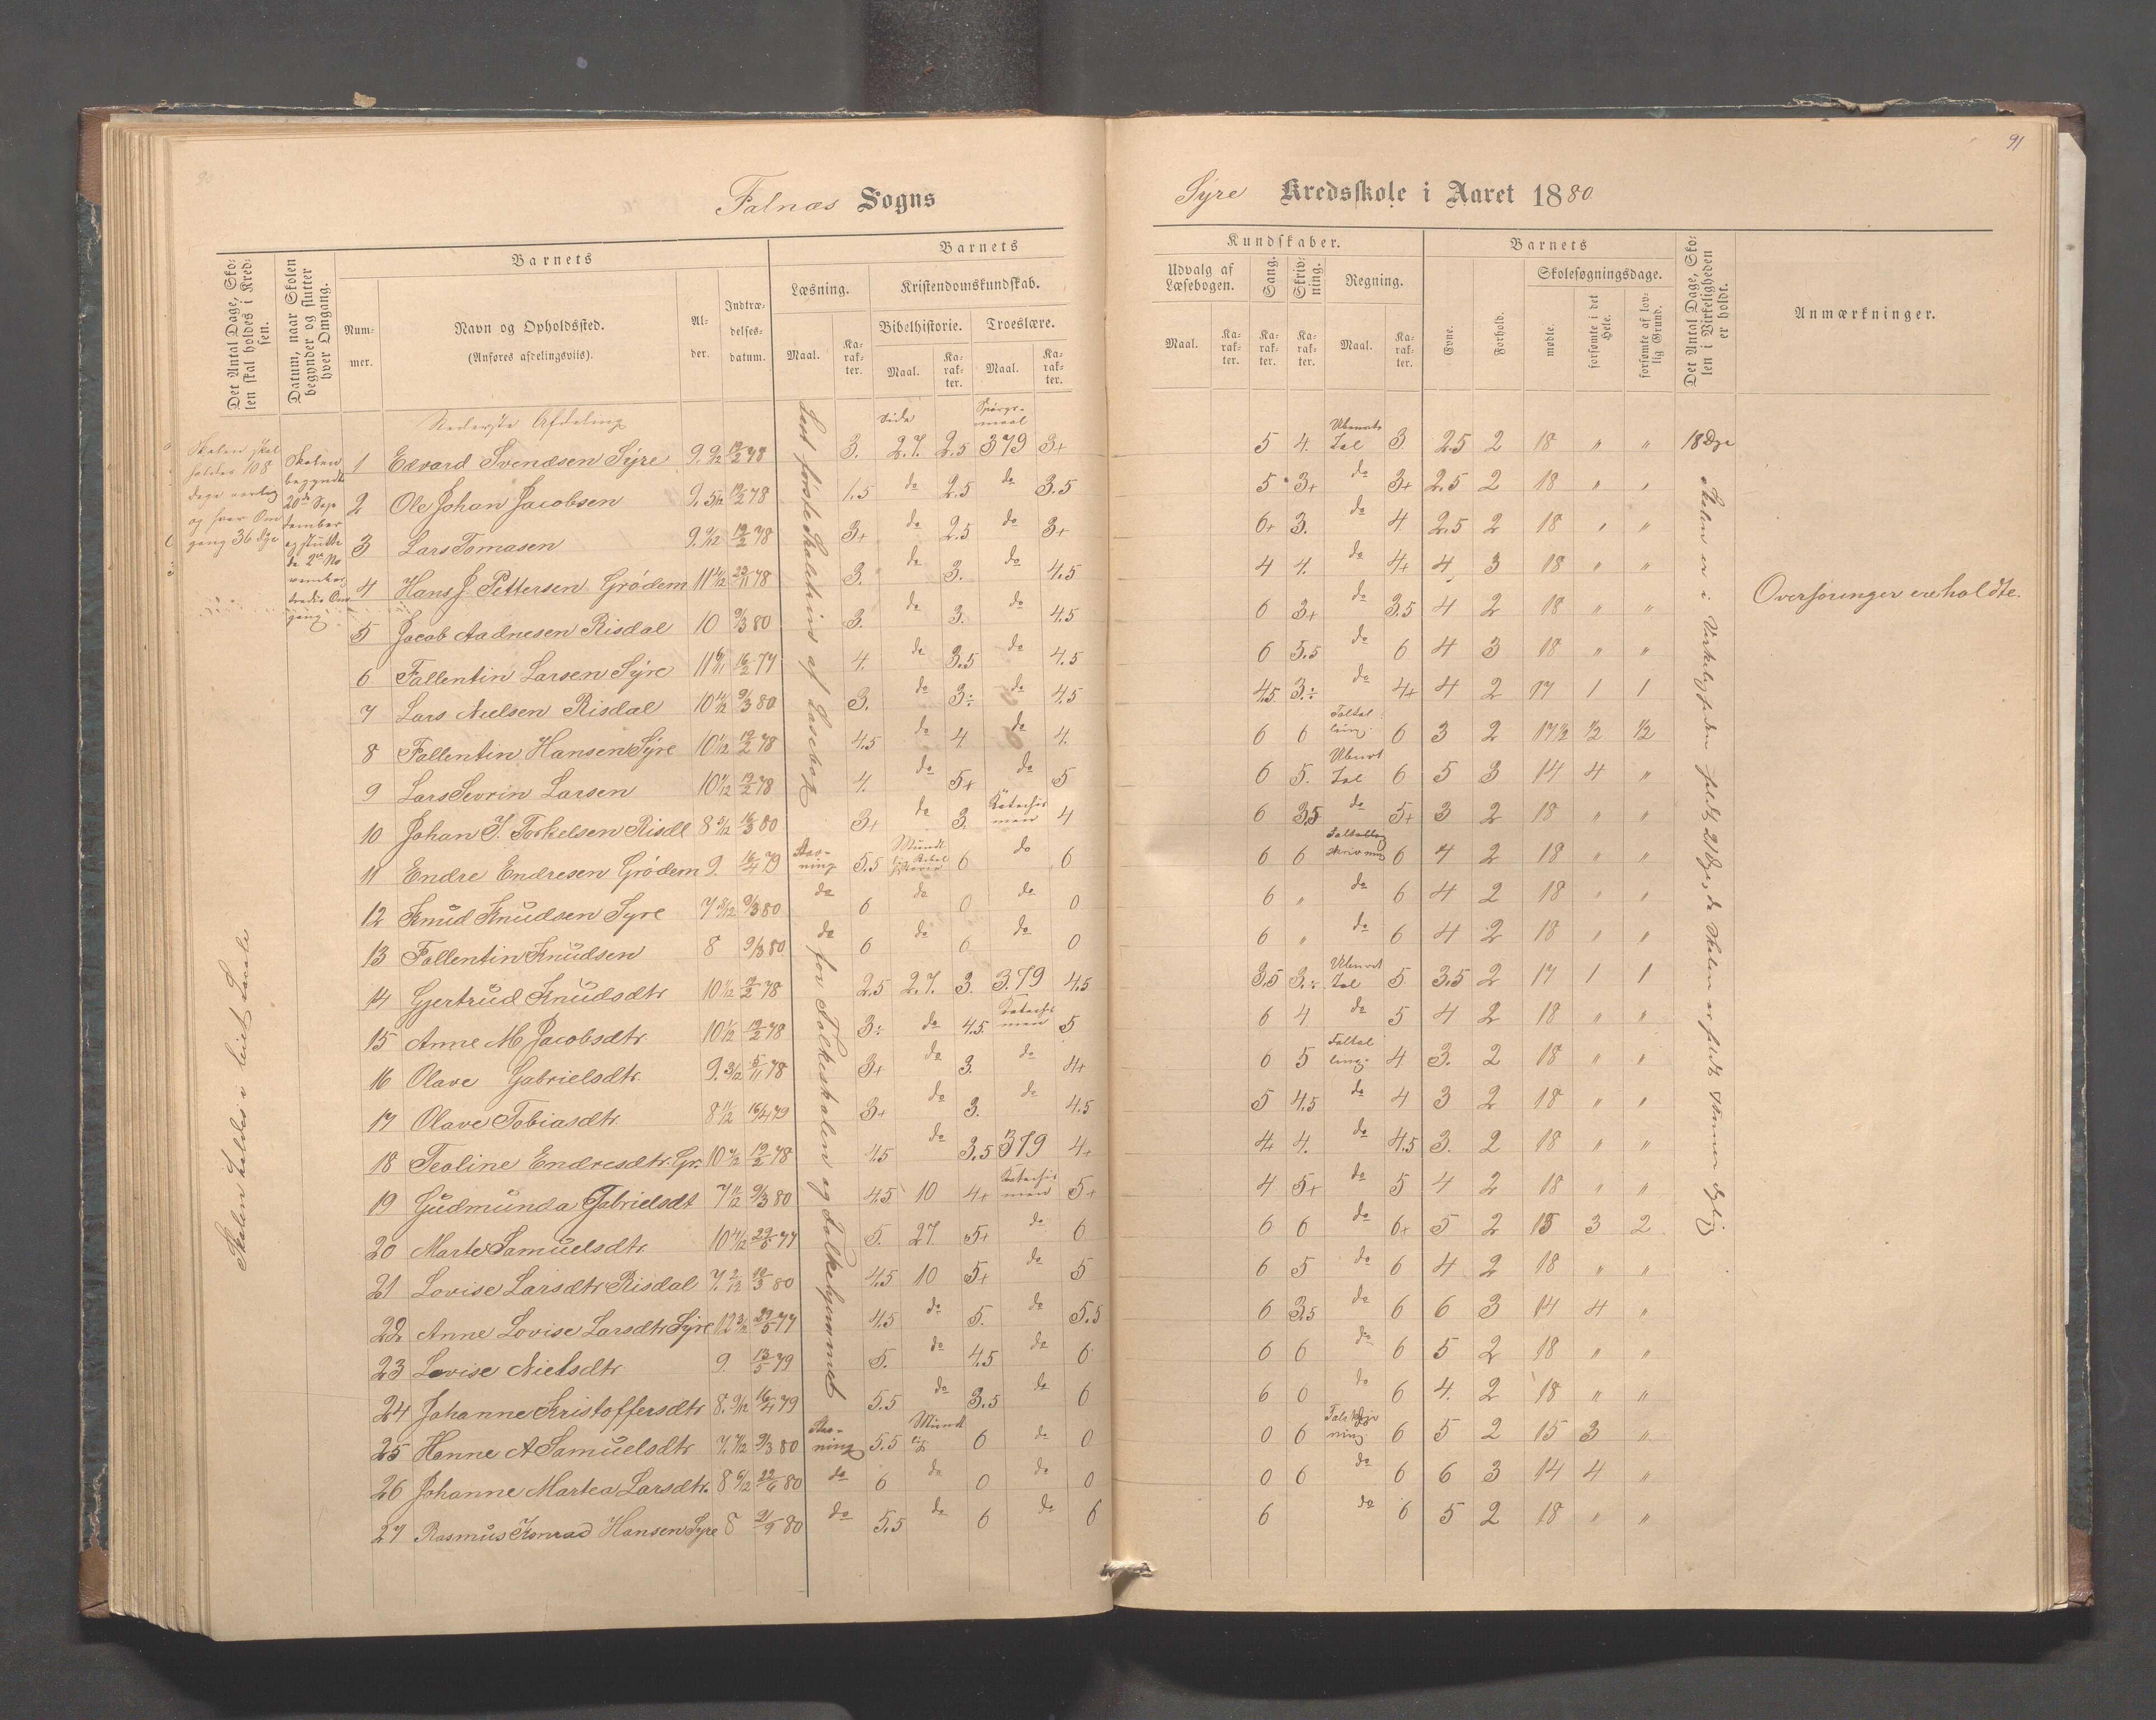 91
Falnæs Sogns
Syre Kredsskole i Aaret 1880
Det Antal Dage, Skolen skal holdes i Kredsen.
Datum, naar Skolen begynder og slutter hver Omgang.
Barnets
Barnets
Kundskaber.
Barnets
Det Antal Dage, Skolen i Virkeligheden er holdt.
Anmærkninger.
Nummer.
Navn og Opholdssted.
(Anføres afdelingsviis).
Alder.
Indtrædelsesdatum.
Læsning.
Kristendomskundskab.
Bibelhistorie.
Troeslære.
Maal.
Karakter.
Maal.
Karakter.
Maal.
Karakter.
Udvalg af Læsebogen.
Sang.
Skrivning.
Regning.
Maal.
Karakter.
Karakter.
Karakter.
Maal.
Karakter.
Evne.
Forhold.
Skolesøgningsdage.
mødte.
forsømte i det Hele.
forsømte af lovlig Grund.
Nederste Afdeling
Side
Spørgsmaal
Skolen skal holdes 108 Dage og hver Omgang 36 Dge
Skolen begyndte 20de September og sluttede 2den November
Skolen holdes i leiet Locale
Lært første Skoletrins af Læsebog for Folkeskolen og Folkehjemmet
1 Edvard Svendsen Syre 9. 9/12 12/2 78 3. 2.7. 2.5 379 3+ 5 4. Ubenævte Tal 3. 2.5 2 18 " " 18 Dge
2 Ole Johan Jacobsen 9. 5/12 12/2 78 1.5 do 2.5 do 3.5 5 3+ do 3+ 2.5 2 18 " "
3 Lars Tomasen 12/2 78 3+ do 2.5 do 3+ 6+ 3. do 4 2.5 2 18 " "
4 Hans J. Pettersen Grødem 78 3. do 3. do 4.5 4 4. do 4+ 4 3 18 " "
5 Jacob Aadnesen Risdal 10 9/3 80 3. do 3. do 4.5 6 3+ do 3.5 4 2 18 " "
6 Fallentin Larsen Syre 16/2 77 4. do 3.5 do 4.5 6 5.5 do 6 4 3 18 " "
7 Lars Nielsen Risdal 9/3 80 3. do 3÷ do 4.5 4.5 3.÷ do 4+ 4 2 17 1 1
8 Fallentin Hansen Syre 12/2 78 4.5 do 4. do 4. 6 6 6 3 2 17 1/2 1/2 1/2
9 Lars Sevrin Larsen 10 1/12 12/2 78 4. do 5+ do 5 6 5. Ubenævt Tal 6 5 3 14 4 "
10 Johan T. Torkelsen Risdl 8 5/12 16/3 80 3+ do 3. Katechismen 4 6 3.5 do 5+ 3 2 18 " "
11 Endre Endresen Grødem 9. 16/4 79 Stavning 5.5 Mundtlig Bibelhistorie 6 do 6 6 6 6 4 2 18 " "
12 Knud Knudsen Syre 7 8/12 9/3 80 do 6 do 0 do 0 6 " do 6 4 2 18 " "
13 Fallentin Knudsen 8 9/3 80 do 6 do 6 do 0 6 " do 6 4 2 18 " "
14 Gjertrud Knudsdtr 78 2.5 2.7. 3. 3.79 4.5 3.5 3.÷ Ubenævt Tal 5 3.5 2 17 1 1
15 Anne M Jacobsdtr. 12/2 78 3÷ do 4.5 Katechismen 5 6 4 do 5 4 2 18 " "
16 Olave Gabrielsdtr. 9. 3/12 5/11 78 3+ do 3. do 4+ 0 5 4 3. 2 18 " "
17 Olave Tobiasdtr. 8 11/12 16/4 79 3+ do 3. do 4.5 5 4.5 do 4 3 2 18 " "
18 Teoline Endresdtr. Gr. 12/2 78 4.5 do 3.5 379 4+ 4 4. do 4.5 3. 2 18 " "
19 Gudmunda Gabrielsdt 7 11/12 9/3 80 4.5 10 4+ Katechismen 5+ 4 5+ do 5 4 2 18 " "
20 Marte Samuelsdtr. 77 5. 27 5+ do 6 6 6 do 6+ 5 2 15 3 2
21 Lovise Larsdtr Risdal 7. 2/12 80 4.5 10 5+ do 5 6 5 do 6 4 2 18 " "
22 Anne Lovise Larsdtr Syre 77 4.5 do 5. do 5.5 6 3.5 do 6 6 3 14 4 "
23 Lovise Nielsdtr. 9. 13/5 79 5. do 4.5 do 6 6 6 do 6 5 2 18 " "
24 Johanne Kristoffersdtr 8. 9/12 16/4 79 5.5 do 3.5 do 6 6 0 do 6 4. 2 18 " "
25 Hanne A Samuelsdtr 9/3 80 Stavning 5.5 Mundtlig 6 do 0 0 6 6 5 2 15 3 "
26 Johanne Martea Larsdtr. 8 6/12 80 do 6 do 0 do 0 0 6 do 6 6 3 14 4 "
27 Rasmus Konrad Hansen Syre 8 80 do 5.5 do 6 do 6 6 do 6 5 2 18 " "
Skolen er i Virkeligheden holdt 21 Dge, da Skolen er holdt Timer daglig
Overføringer ere holdte.